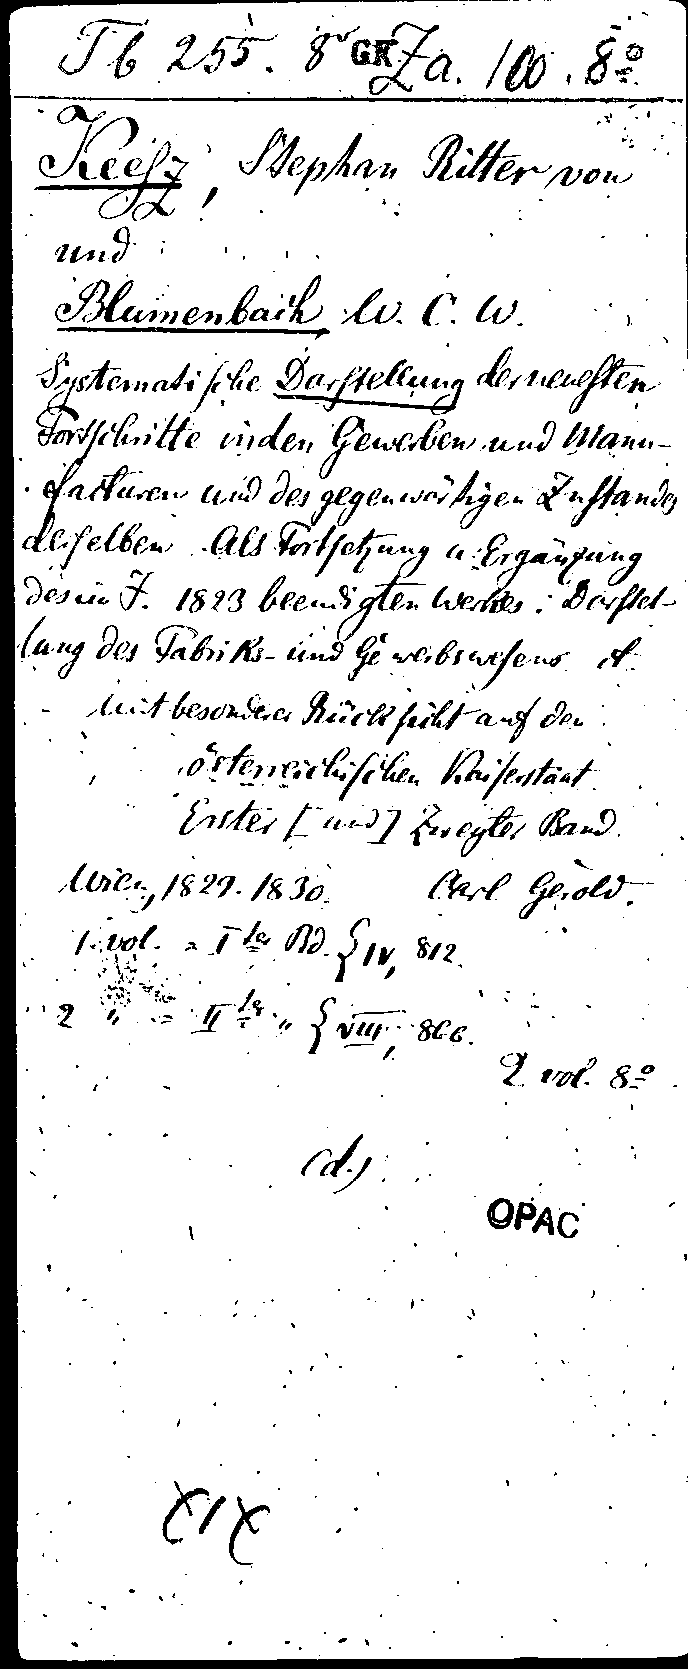 Tb 255. 8° GK Za. 100. 8°
Keeſz, Stephan Ritter von
und
Blumenbach, W. C. W.
Systematiſche Darſtellung der neueſten
Fortſchritte in den Gewerben und Manu-
facturen und des gegenwärtigen Zuſtandes
derſelben. Als Fortſetzung u. Ergänzung
des im J. 1823 beendigten Werkes: Darſtel-
lung des Fabriks- und Gewerbsweſens
Mit beſonderer Rückſicht auf den
öſterreichiſchen Kaiſerstaat.
Erster [und] Zweyter Band.
Wien, 1829. 1830. Carl Gerold.
1. vol. = I ter Bd. { IV, 812.
2 " = II ter " { VIII, 866.
2 vol. 8°
(d.)
OPAC
XIX